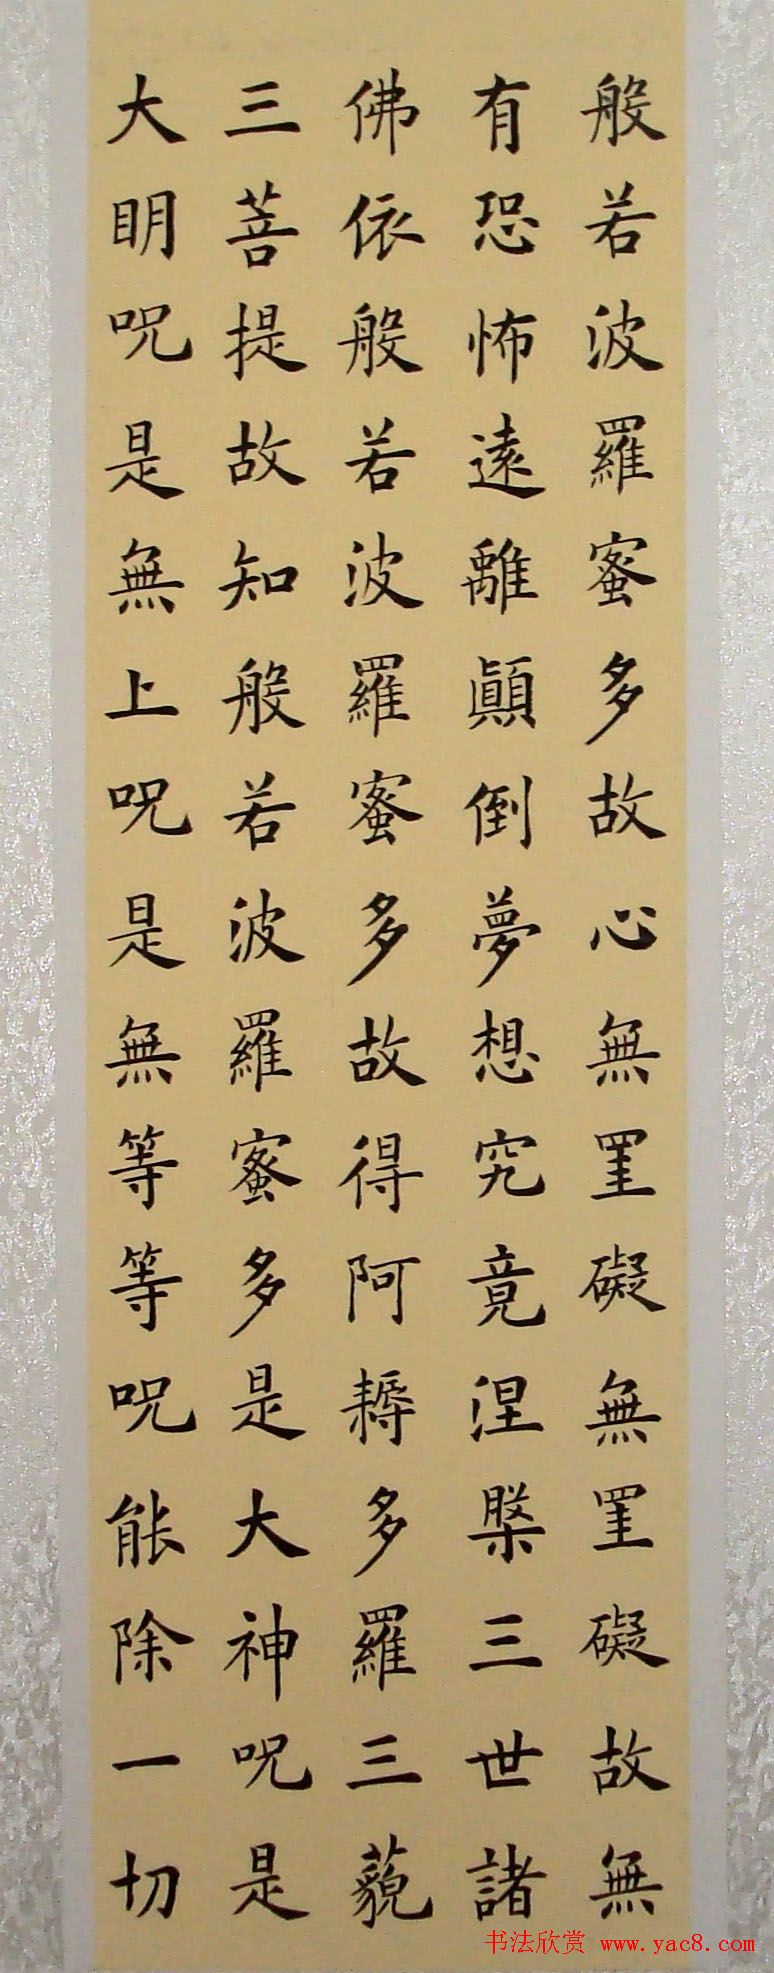 般若波羅蜜多故心無罣礙無罣礙故無
有恐怖遠離顚倒夢想究竟涅槃三世諸
佛依般若波羅蜜多故得阿耨多羅三藐
三菩提故知般若波羅蜜多是大神呪是
大明呪是無上呪是無等等呪能除一切
书法欣赏 www.yac8.com